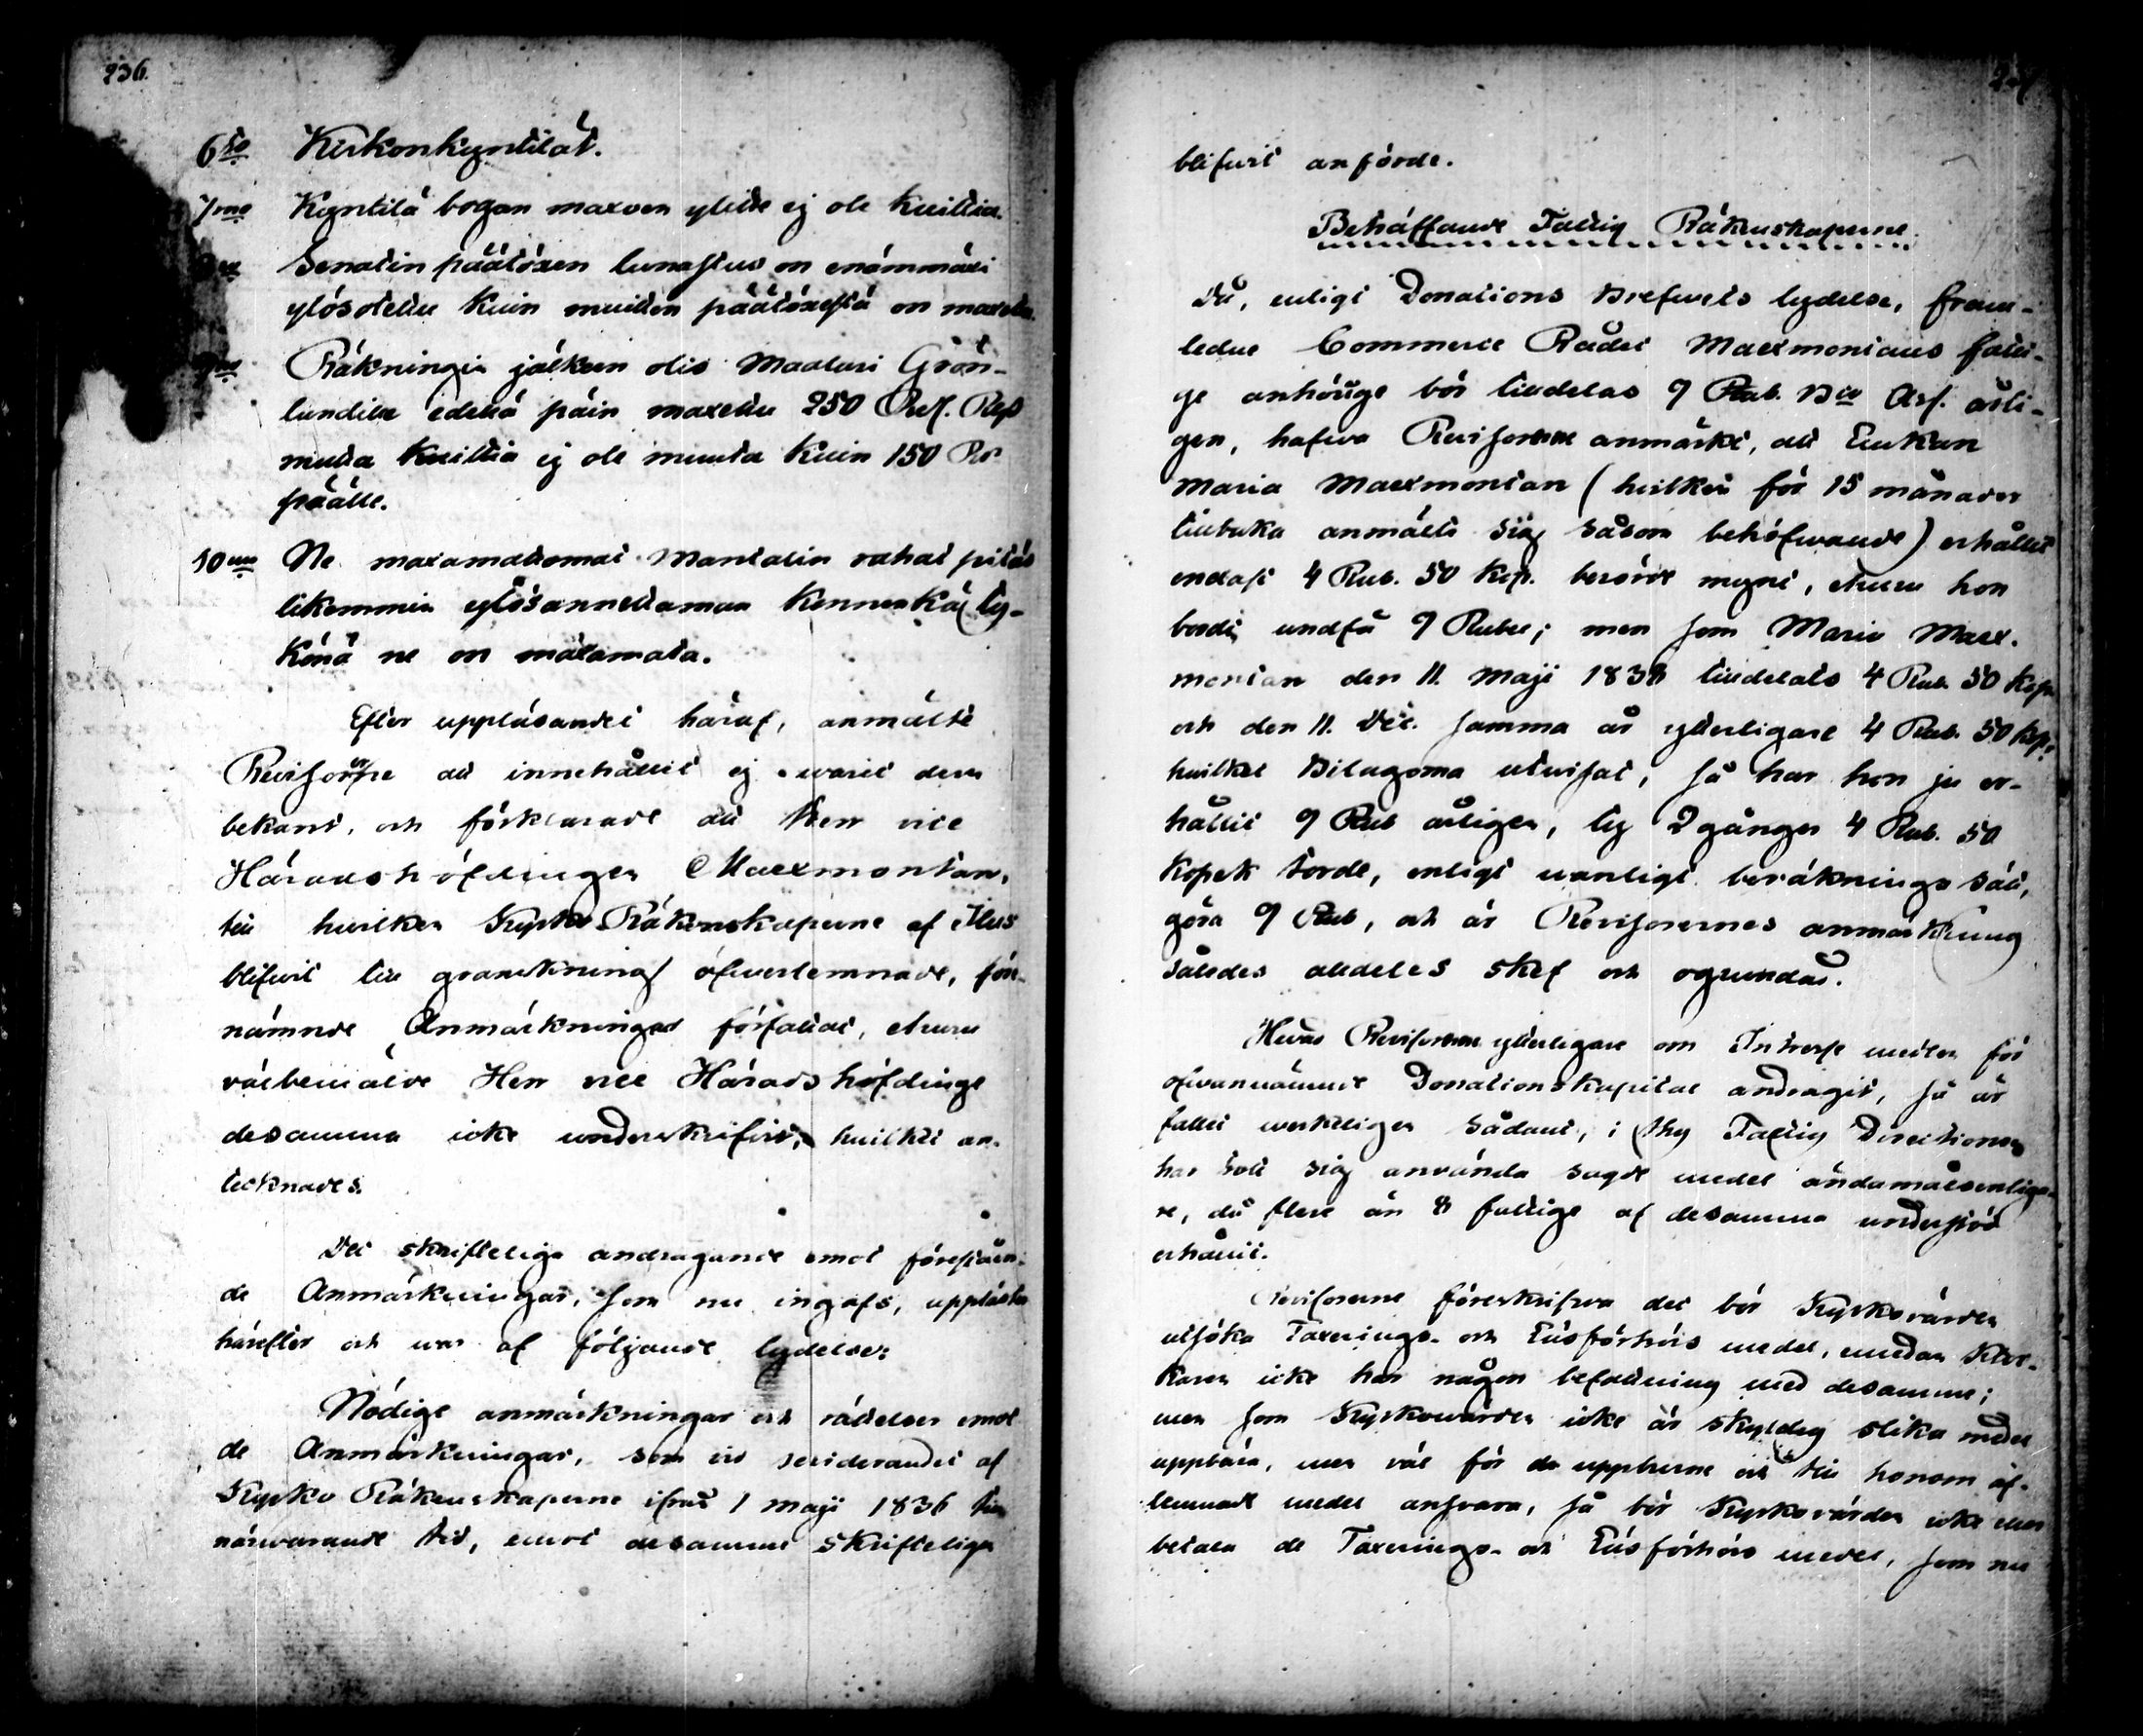 236.
6to Kirkonkyntilät.
7mo Kyntilä bogan maxoen ylitte ej ole kuittia.
Senatin päätöxen lunastus on enämmäxi
ylösotettu kuin muitten päätöxestä on maxettu.
Räkningin jälkeen olis Maalari Grön-
lundille edeskä päin maxettu 250 Ru. Rup
mutta kuittia ej ole muuta kuin 150 Ru
päälle.
10mo Ne maxamattomat Mantalin rahat pitäis
likemmin ylösannettaman kennenkä ty-
könä ne on mäxamata.
Efter uppläsandet häraf, anmälte
Revisorerne att innehållet ej warit dem
bekant, och förklarade att Herr vice
Häradshöfdingen Maexmontan,
till hvilken Kyrko Räkenskaperne af Ilus
blifwit till granskning öfwerlemnade, för-
nämnde Anmärkningar författat, ehuru
välbemälde Herr vice Häradshöfdinge
desamma icke underskrifvit, hvilket an-
tecknades.
Det skrifteliga andragandet emot förestäen-
de Anmärkningar, som nu ingafs, upplästes
härefter och war af följande lydelse:
Nödige anmärkningar och rättelser emot
de Anmärkningar, som vid reviderandet af
Kyrko Räkenskaperne ifrån 1 Maji 1836 till
närwarande tid, emot desamma skrifteligen
blifwit anförde.
Beträffande Fattig Räkenskaperne.
Då, enligt Donations Brefwets lydelse, fram-
ledne Commerce Rådet Maexmontans fatti-
ge anhörige bör tilldelas 9 Rub. B:co Ass. årli-
gen, hafwa Revisorerne anmärkt, att Enkan
Maria Maexmontan (hvilken för 15 månader
tillbaka anmält sig såsom behöfwande) erhållit
endast 4 Rub. 50 Kop. berörde mynt, ehuru hon
bordt undfå 9 Rubel; men som Maria Maex-
montan den 11. Maji 1838 tilldelats 4 Rub. 50 Kop.
och den 11. Dec. samma år ytterligare 4 Rub. 50 Kop.
hvilket Bilagorna utwisat, så har hon ju er-
hållit 9 Rub årligen, ty 2 gånger 4 Rub. 50
Kopek torde, enligt wanligt beräknings sätt,
göra 9 Rub, och är Revisorernes anmärkning
således alldeles skef och ogrundad.
Hwad Revisorerne ytterligare om Intresse medlen för
ofwannämnde Donationskapital andragit, så är
fallet werkeligen sådant, i thy Fattig Directionen
har trott sig använda sagde medel ändamålsenliga-
re, då flere än 8 fattige af desamma understöd
erhållit.
Revisorerne föreskrifwa det bör Kyrkovärden
utsöka Taxerings- och Läsförhörs medel, emedan Kloc-
karen icke har någon befattning med desamma;
men som Kyrkowärden icke är skyldig slika medel
uppbära, men väl för de uppburne och till honom af-
lemnade medel answara, så bör Kyrkovärden icke eller
betala de Taxerings- och Läsförhörs medel, som nu